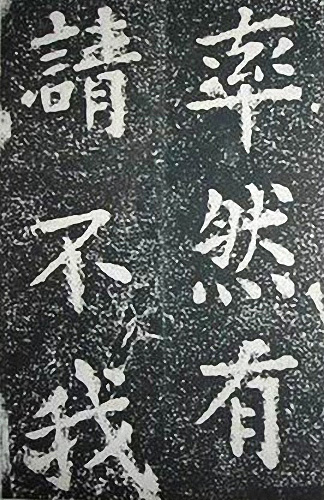 率然有
請不我